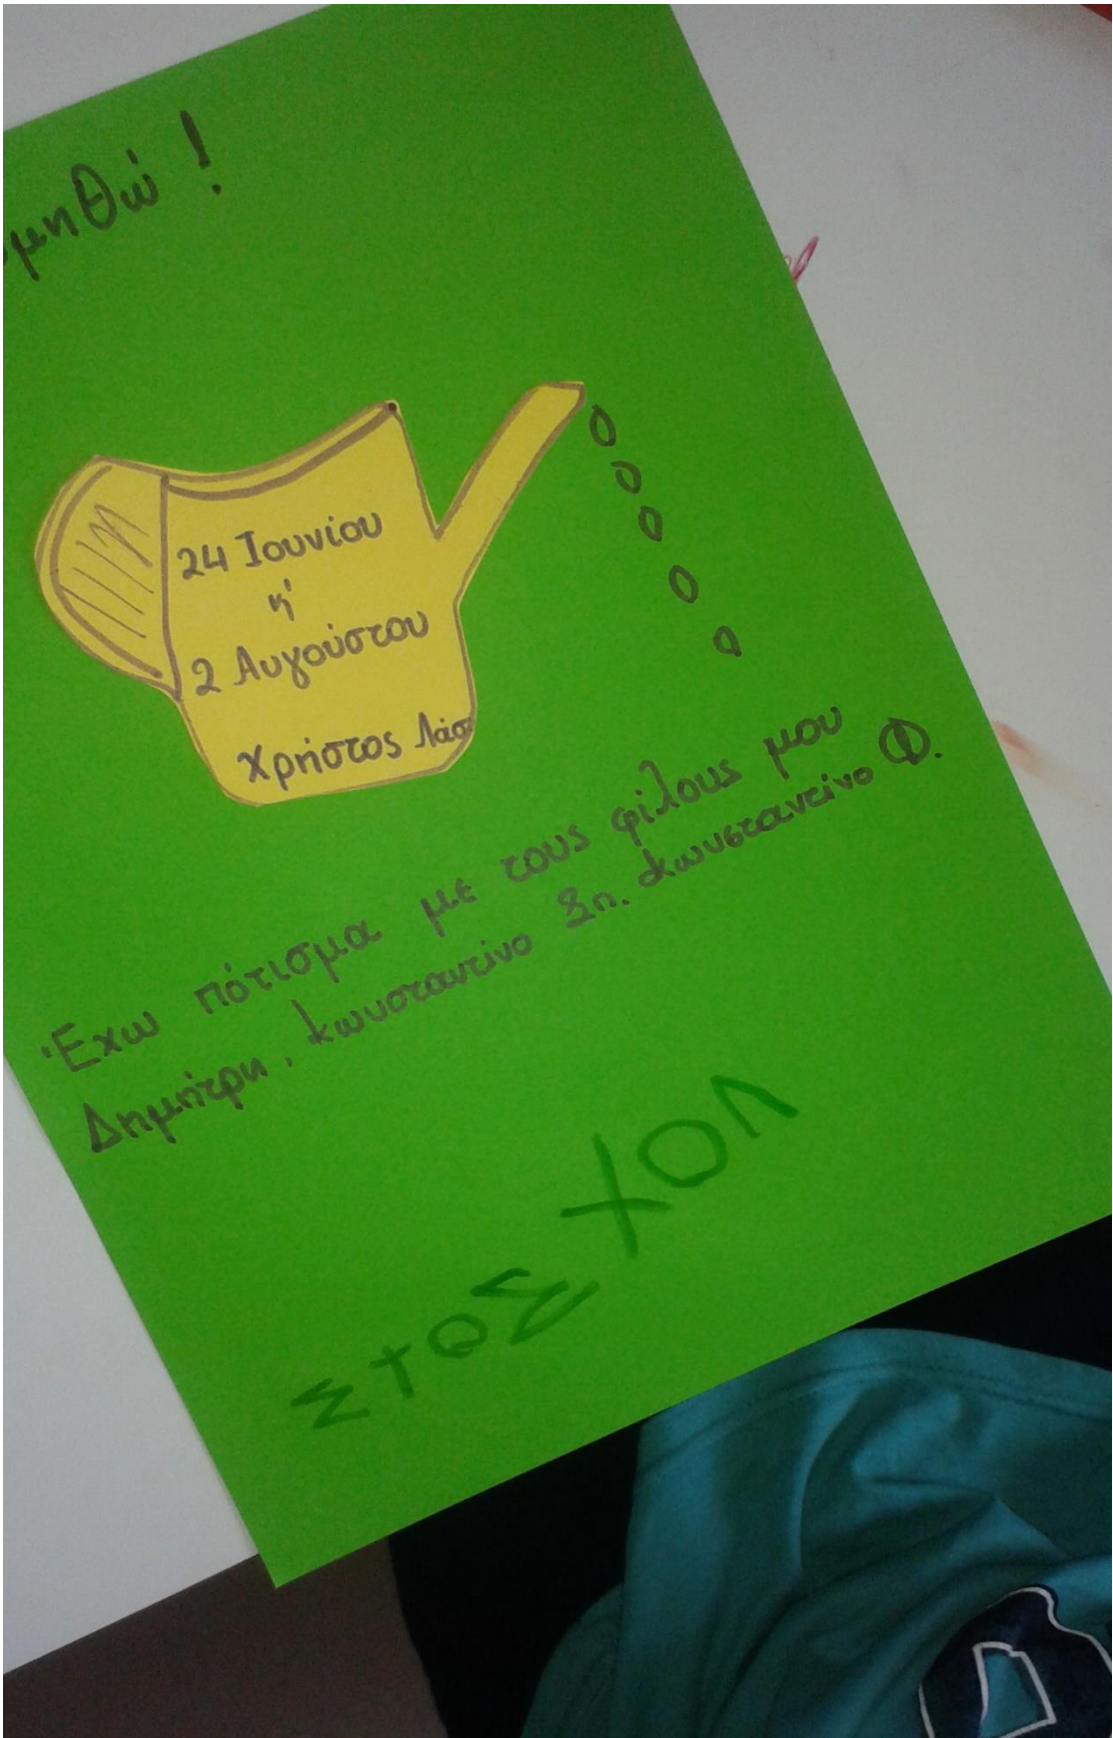 μηθώ !
24 Ιουνίου
κ'
2 Αυγούστου
Χρήστος Λάσ
Έχω πότισμα με τους φίλους μου
Δημήτρη, Κωνσταντίνο Ξη. Κωνσταντίνο Φ.